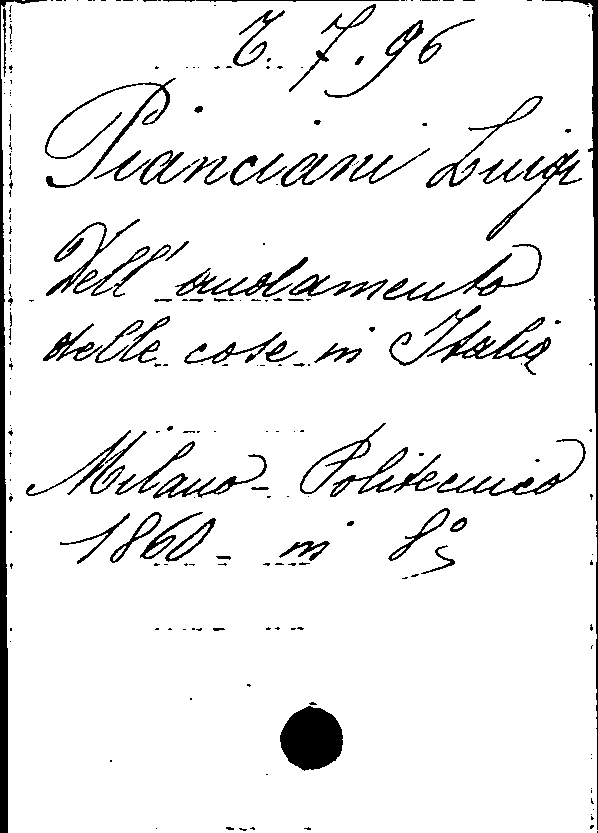 7.96
Pianciani Luigi
Dell'andamento
delle cose in Italia
Milano - Politecnico
1860 - in 8°